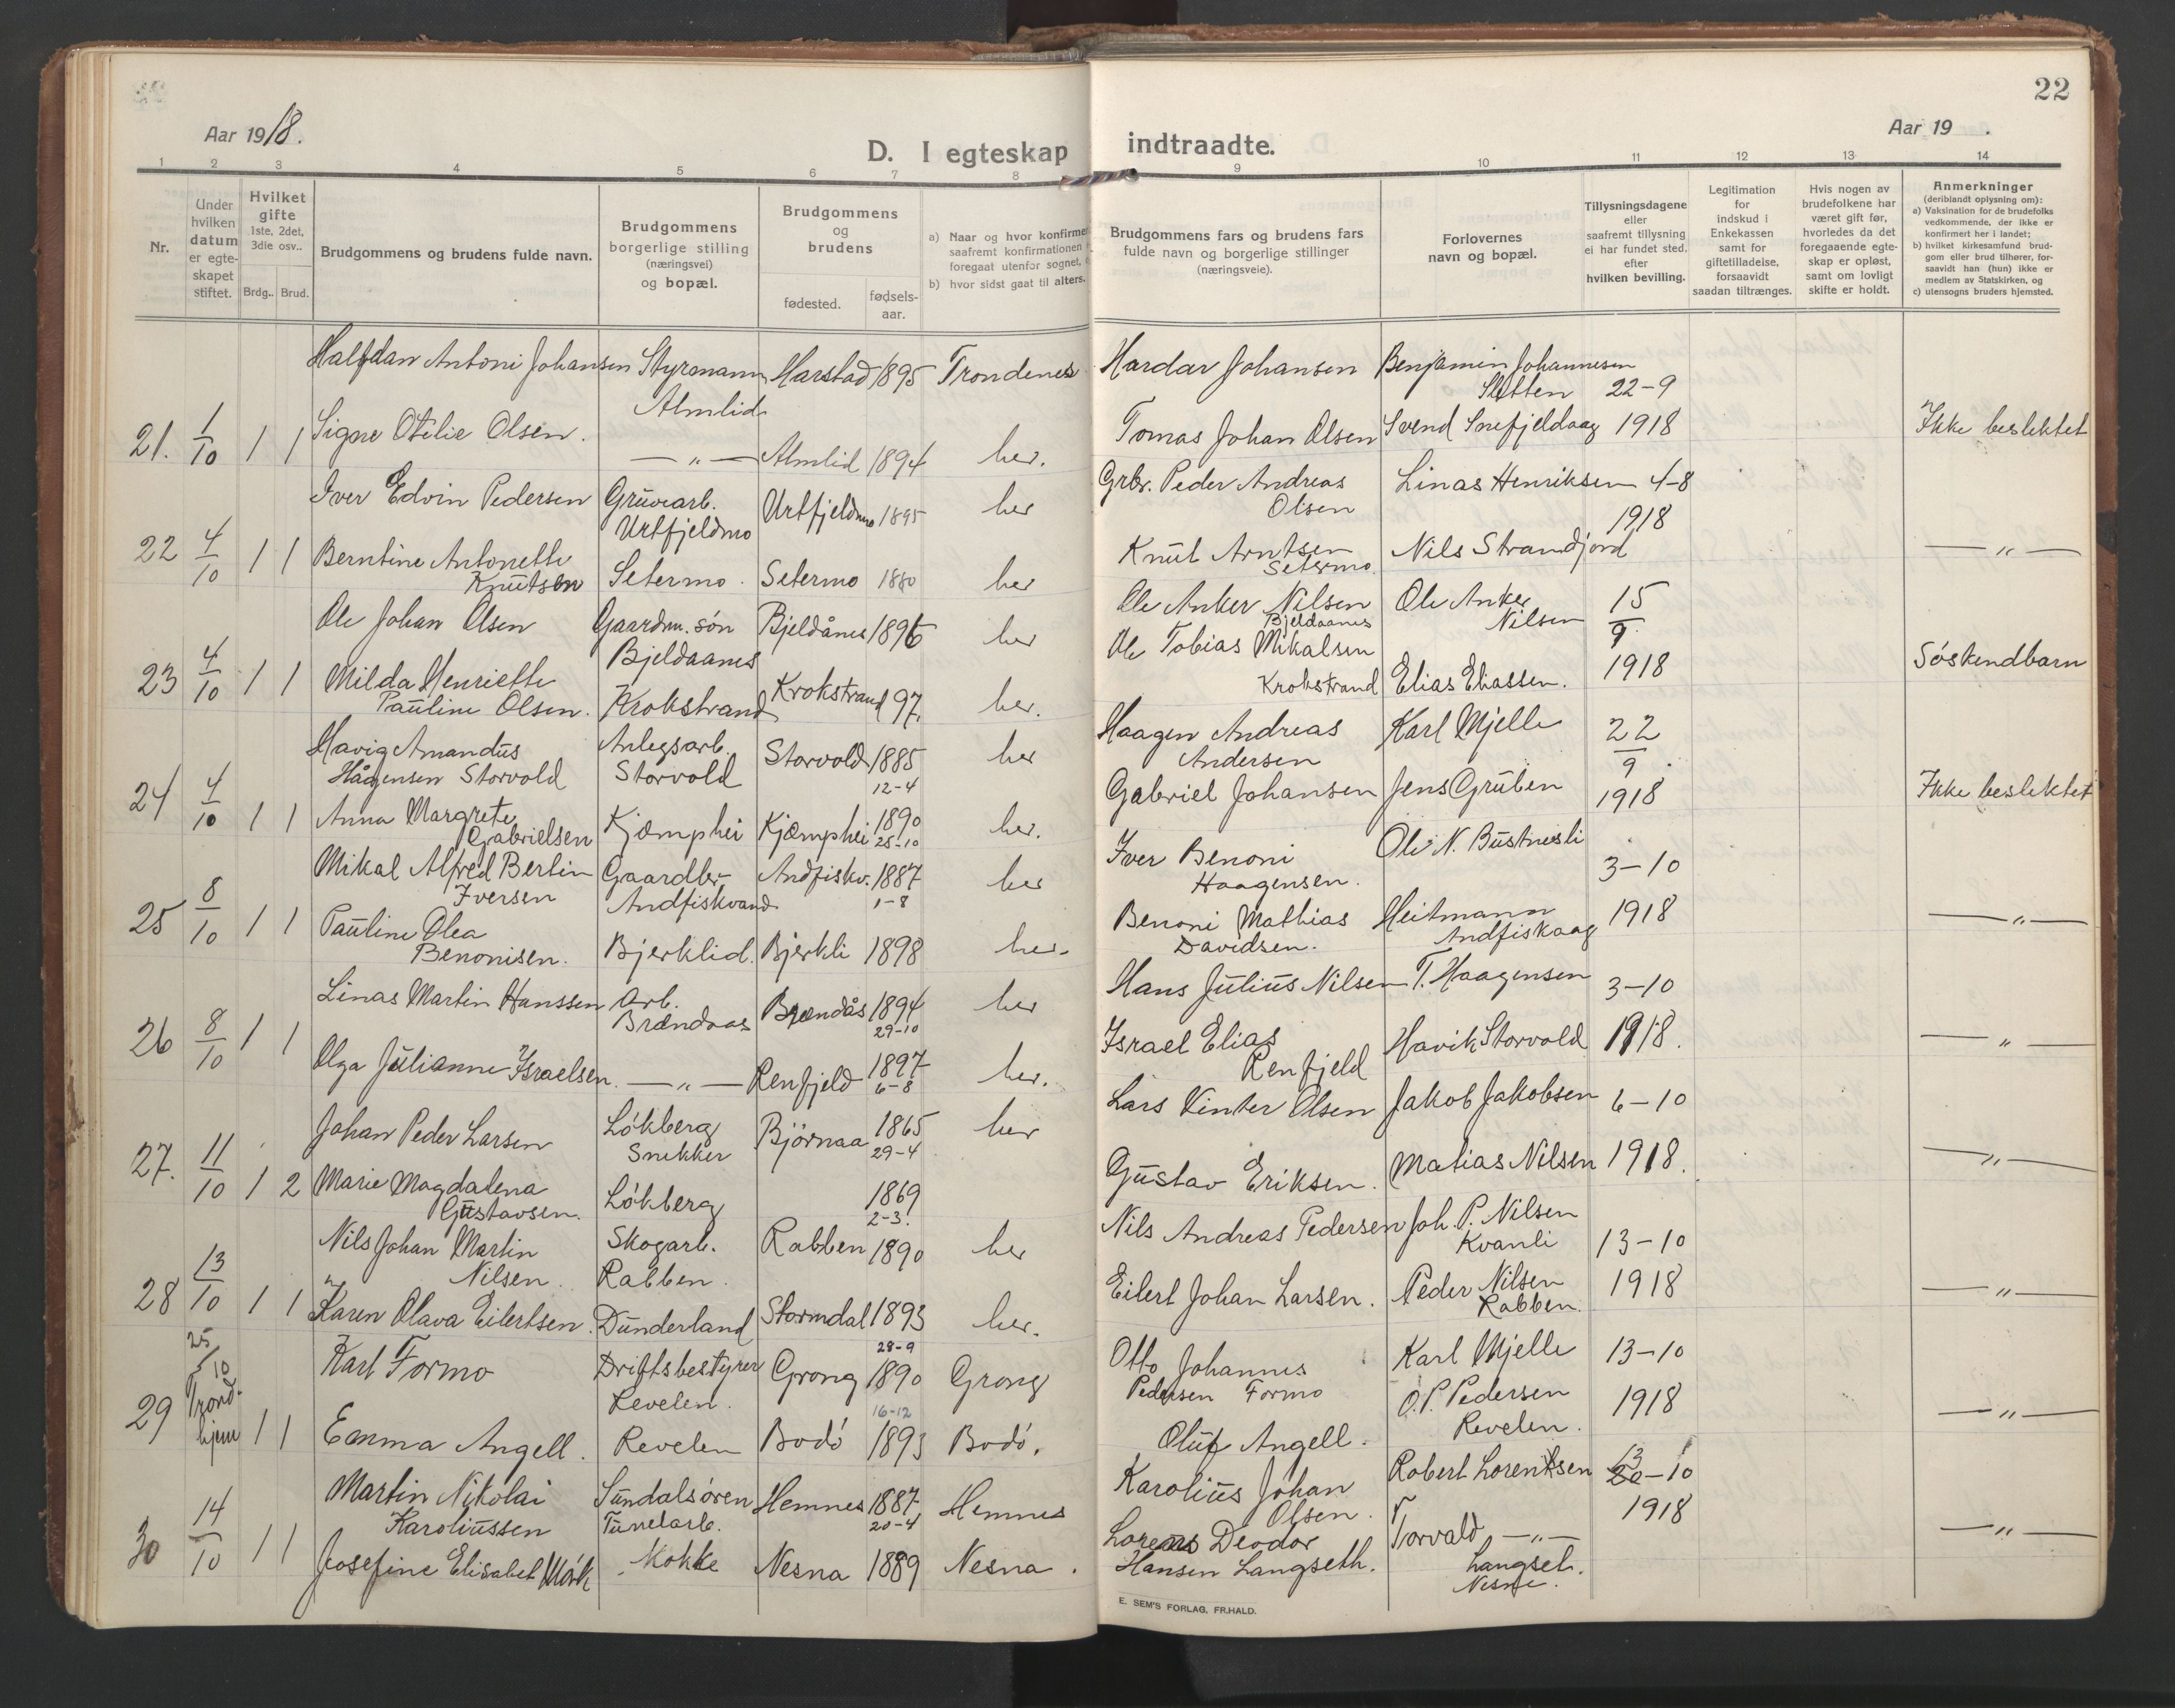 22
Aar 1918.
Aar 19 .
D. I egteskap indtraadte.
1 2 3 4 5 6 7 8 9 10 11 12 13 14
Nr.
Under hvilken datum er egteskapet stiftet.
Hvilket gifte 1ste, 2det, 3die osv..
Brdg.. Brud.
Brudgommens og brudens fulde navn.
Brudgommens borgerlige stilling (næringsvei) og bopæl.
Brudgommens og brudens
fødested. fødsels-aar.
a) Naar og hvor konfirme
saafremt konfirmationen
foregaat utenfor sognet,
b) hvor sidst gaat til alters.
Brudgommens fars og brudens fars fulde navn og borgerlige stillinger (næringsveie).
Forlovernes navn og bopæl.
Tillysningsdagene eller saafremt tillysning ei har fundet sted, efter hvilken bevilling.
Legitimation for indskud i Enkekassen samt for giftetilladelse, forsaavidt saadan tiltrænges.
Hvis nogen av brudefolkene har været gift før, hvorledes da det foregaaende egteskap er opløst, samt om lovligt skifte er holdt.
Anmerkninger
(deriblandt oplysning om):
a) Vaksination for de brudefolks vedkommende, der ikke er konfirmert her i landet;
b) hvilket kirkesamfund brudgom eller brud tilhører, forsaavidt han (hun) ikke er medlem av Statskirken, og
c) utensogns bruders hjemsted.
Halfdan Antoni Johansen Styrmann Harstad 1895 Trondenes Hardar Johansen Benjamin Johannesen
Almlid Sletten 22-9
21. 1/10 1 1 Signe Otilie Olsen. — „ — Almlid 1894 her. Tomas Johan Olsen Svend Snefjeldaag 1918 Ikke beslektet
Iver Edvin Pedersen Gruvearb. Urtfjeldmo 1895 her Grbr. Peder Andreas Linas Henriksen 4-8
Urtfjeldmo Olsen 1918
22 4/10 1 1 Berntine Antonette Setermo. Setermo 1880 her Knut Arntsen Nils Strandjord — „ —
Knutsen Setermo.
Ole Johan Olsen Gaardm. søn Bjeldånes 1896 her Ole Anker Nilsen Ole Anker 15/9
Bjeldaanes Bjeldaanes Nilsen
23 4/10 1 1 Milda Henriette Krokstrand Krokstrand 97. her. Ole Tobias Mikalsen 1918 Søskendbarn
Pauline Olsen. Krokstrand Elias Eliassen.
Havig Amandus Anlegsarb. Storvold 1885 her Haagen Andreas Karl Mjelle 22/9
Hågensen Storvold Storvold 12-4 Andersen
24 4/10 1 1 Anna Margrete Kjæmphei Kjæmphei 1890 her. Gabriel Johansen Jens Gruben 1918 Ikke beslektet
Gabrielsen 25-10
Mikal Alfred Bertin Gaardbr. Andfiskv. 1887 her Iver Benoni Ole N. Bustnesli 3-10
Iversen Andfiskvand 1-8 Haagensen.
25 8/10 1 1 Pauline Olea Bjerklid. Bjerkli 1898 her. Benoni Mathias Heitmann 1918 — „ —
Benonisen. Davidsen. Andfiskaag
Linas Martin Hanssen Arb. Brændås 1894 her Hans Julius Nilsen T. Haagensen 3-10
Brændaas 29-10
26 8/10 1 1 Olga Julianne Israelsen. — „ — Renfjeld 1897 her. Israel Elias Havik Storvold 1918. — „ —
6-8 Renfjeld
Johan Peder Larsen Løkberg Bjørnaa 1865 her Lars Vinter Olsen Jakob Jakobsen 6-10
Snekker 29-4
27. 11/10 1 2 Marie Magdalena Løkberg 1869 Gustav Eriksen. Matias Nilsen 1918. — „ —
Gustavsen. 2-3.
Nils Johan Martin Skogarb. Rabben 1890 her Nils Andreas Pedersen Joh. P. Nilsen 13-10
Nilsen. Rabben. Kvanli
28 13/10 1 1 Karen Olava Eilertsen. Dunderland Stormdal 1893 her. Eilert Johan Larsen. Peder Nilsen 1918 — „ —
Rabben.
28-9
Karl Formo Driftsbestyrer Grong 1890 Grong Otto Johannes Karl Mjelle 13-10
Revelen. 16-12 Pedersen Formo
29 25/10 Trondhjem 1 1 Emma Angell. Revelen Bodø 1893 Bodø. Oluf Angell. O.P. Pedersen Revelen. 1918 — „ —
Martin Nikolai Sundalsøren Hemnes 1887 Hemnes Karolius Johan Robert Lorentsen 13-10
Karoliussen Tunelarb. 20-4 Olsen. 1918
30 14/10 1 1 Josefine Elisabet Mørk Mokke Nesna 1889 Nesna. Lorens Deodor Torvald — „ — — „ —
Hansen Langseth. Langset. Nesne.
E. SEM'S FORLAG, FR.HALD.